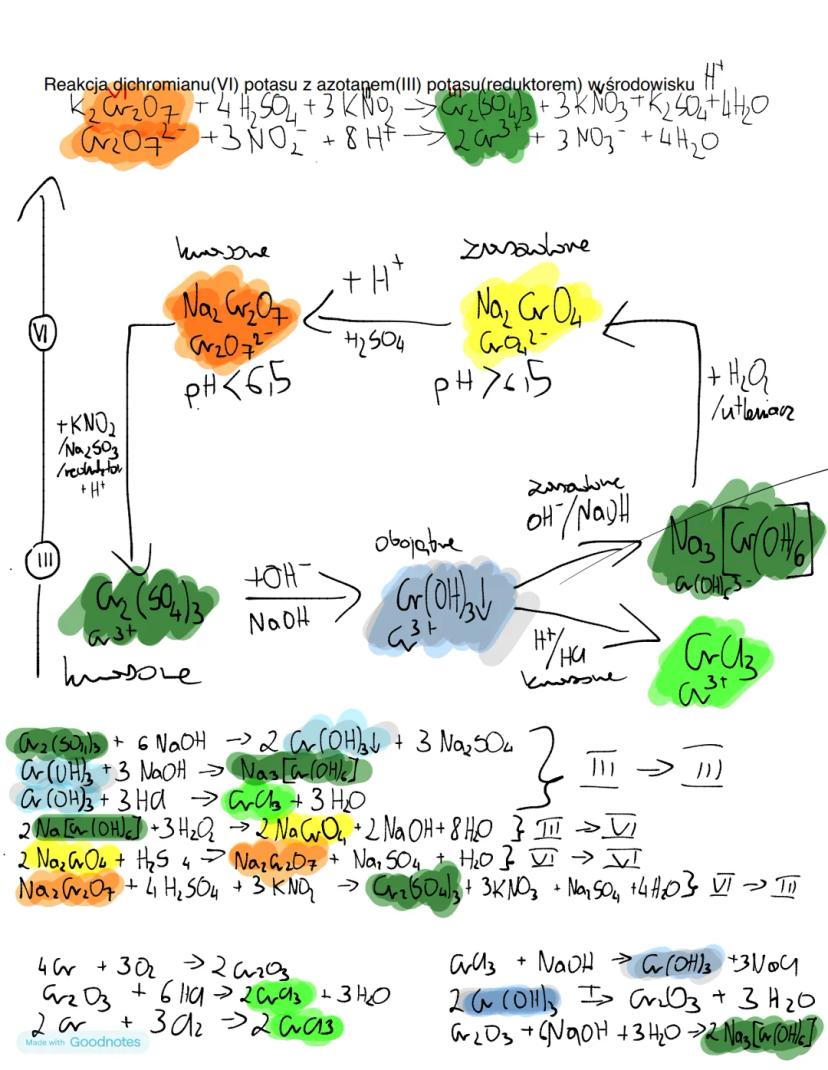 Reakcja dichromianu(VI) potasu z azotanem(III) potasu(reduktorem) wśrodowisku H⁺
VI III
K₂Cr₂O₇ + 4H₂SO₄ + 3KNO₂ → Cr₂(SO₄)₃ + 3KNO₃ + K₂SO₄ + 4H₂O
Cr₂O₇²⁻ + 3NO₂⁻ + 8H⁺ → 2Cr³⁺ + 3NO₃⁻ + 4H₂O
kwasowe
zasadowe
Na₂Cr₂O₇
Cr₂O₇²⁻
pH < 6,5
+ H⁺
H₂SO₄
Na₂CrO₄
CrO₄²⁻
pH > 6,5
VI
+ H₂O₂
/utleniacz
+KNO₂
/Na₂SO₃
/reduktor
+H⁺
zasadowe
OH⁻/NaOH
III
obojętne
Na₃[Cr(OH)₆]
Cr(OH)₆³⁻
Cr₂(SO₄)₃
Cr³⁺
kwasowe
+OH⁻
NaOH
Cr(OH)₃↓
Cr³⁺
H⁺/HCl
kwasowe
CrCl₃
Cr³⁺
Cr₂(SO₄)₃ + 6NaOH → 2Cr(OH)₃↓ + 3Na₂SO₄
Cr(OH)₃ + 3NaOH → Na₃[Cr(OH)₆] } III → III
Cr(OH)₃ + 3HCl → CrCl₃ + 3H₂O
2Na[Cr(OH)₆] + 3H₂O₂ → 2NaCrO₄ + 2NaOH + 8H₂O } III → VI
2Na₂CrO₄ + H₂S 4 → Na₂Cr₂O₇ + Na₂SO₄ + H₂O } VI → VI
Na₂Cr₂O₇ + 4H₂SO₄ + 3KNO₂ → Cr₂(SO₄)₃ + 3KNO₃ + Na₂SO₄ + 4H₂O } VI → III
4Cr + 3O₂ → 2Cr₂O₃
Cr₂O₃ + 6HCl → 2CrCl₃ + 3H₂O
2Cr + 3Cl₂ → 2CrCl₃
CrCl₃ + NaOH → Cr(OH)₃ + 3NaCl
2Cr(OH)₃ T→ Cr₂O₃ + 3H₂O
Cr₂O₃ + 6NaOH + 3H₂O → 2Na₃[Cr(OH)₆]
Made with Goodnotes